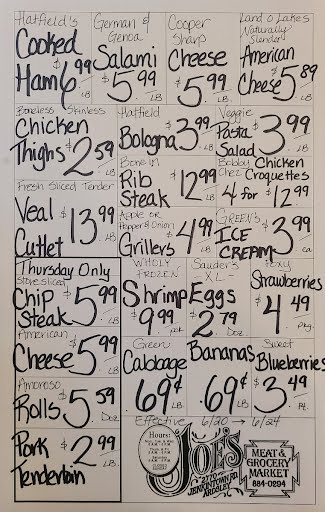 Hatfield's
Cooked
Ham $6.99
LB
German &
Genoa
Salami
$5.99
LB
Cooper
Sharp
Cheese
$5.99
LB
Land O Lakes
Naturally
Slender
American
Cheese $5.89
LB
Boneless Skinless
Chicken
Thighs $2.59
LB
Hatfield
Bologna $3.99
LB
Veggie
Pasta
Salad $3.99
LB
Bone in
Rib
Steak $12.99
LB
Bobby Chez Chicken
Croquettes
4 for $12.99
Fresh Sliced Tender
Veal
Cutlet $13.99
LB
Apple or
Pepper & Onion
Grillers $4.99
LB
GREEN'S
ICE
CREAM $3.99
ea
Thursday Only
Store sliced
Chip
Steak $5.99
LB
Wholy
Frozen
Shrimp
$9.99 pk.
Sauder's
XL-
Eggs
$2.79
Doz.
Foxy
Strawberries
$4.49
pkg.
American
Cheese $5.99
LB
Green
Cabbage
.69¢
LB
Bananas
.69¢
LB
Sweet
Blueberries
$3.49
Pt.
Amoroso
Rolls $5.59
Doz
Pork $2.99
Tenderloin
LB
Effective 6/20 → 6/24
Hours:
JOE'S
2770
JENKINTOWN RD.
ARDSLEY
MEAT &
GROCERY
MARKET
884-0294